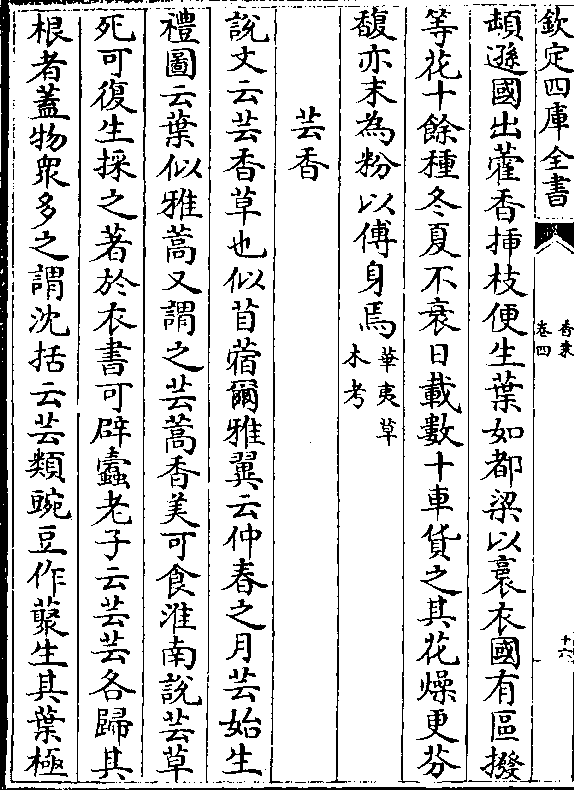 欽定四庫全書
香乗
卷四
十六
頓遜國出藿香挿枝便生葉如都梁以裛衣國有區撥
等花十餘種冬夏不衰日載數十車貨之其花燥更芬
馥亦末為粉以傅身焉華夷草木考
芸香
說文云芸香草也似苜蓿爾雅翼云仲春之月芸始生
禮圖云葉似雅蒿又謂之芸蒿香美可食淮南説芸草
死可復生採之著於衣書可辟蠹老子云芸芸各歸其
根者蓋物衆多之謂沈括云芸類豌豆作藂生其葉極